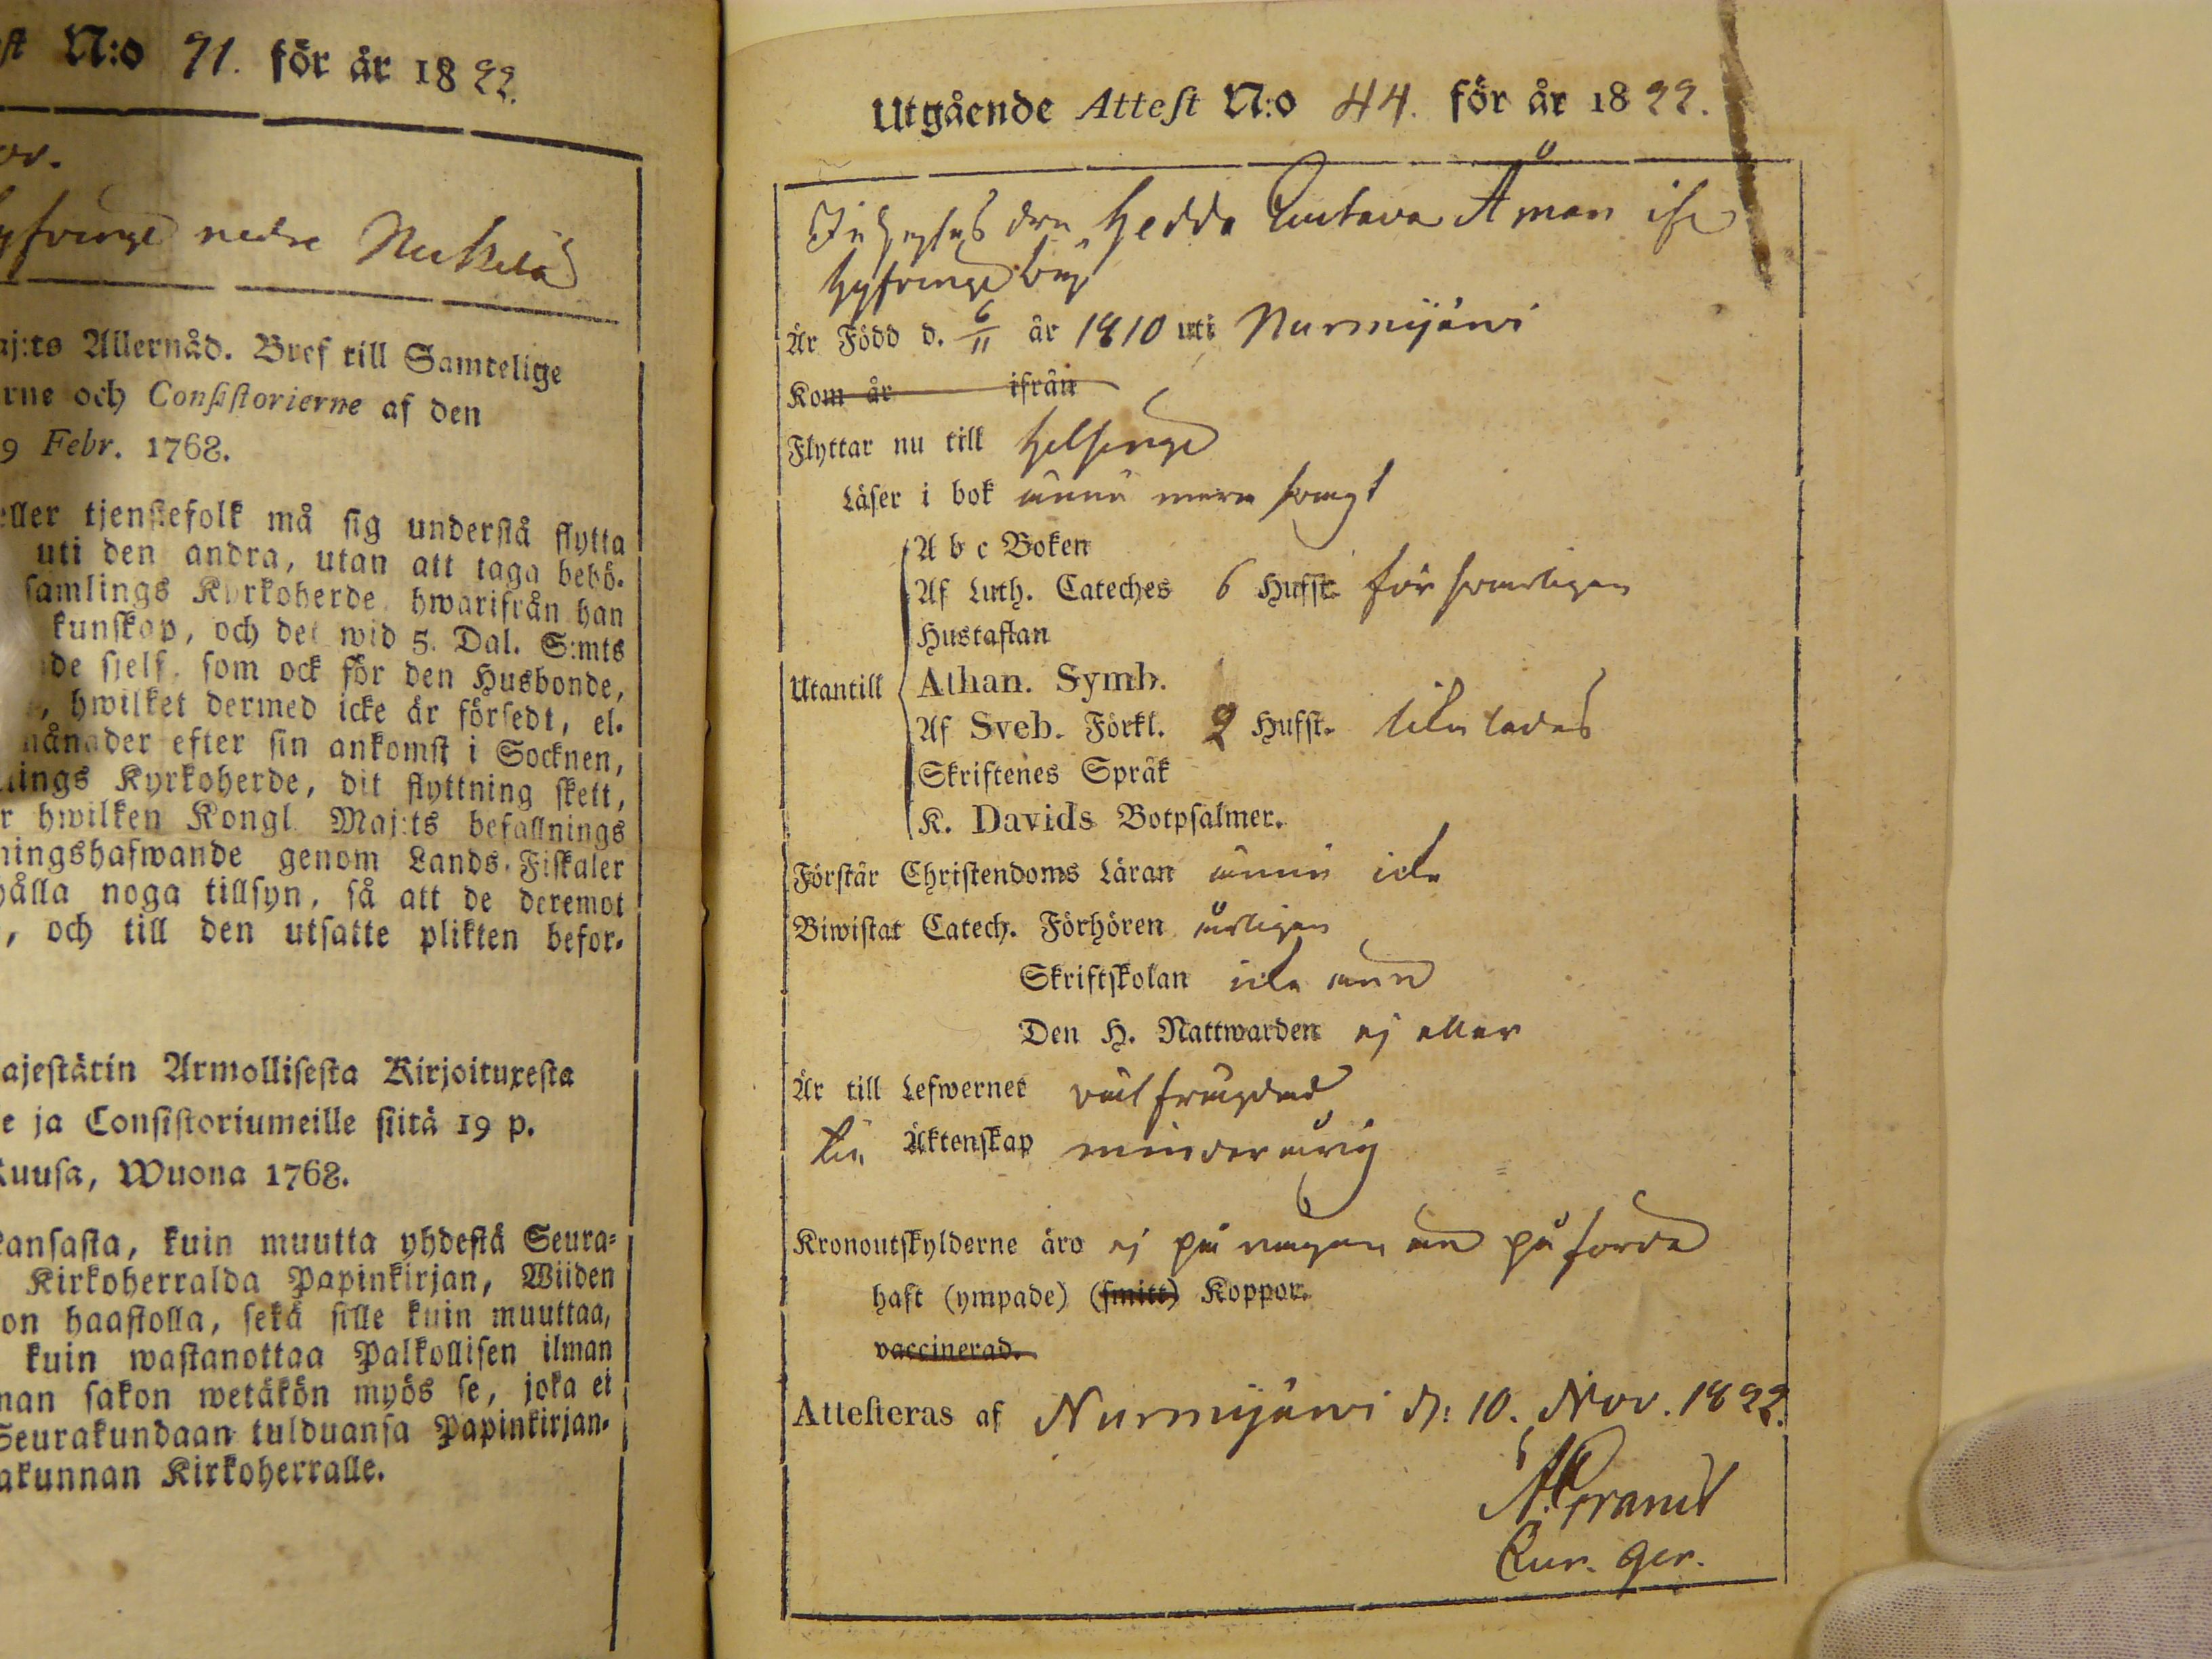 N:o 91. för år 1822.
nedre Nukila
Maj:ts Allernåd. Bref till Samtelige
och Consistorierne af den
9 Febr. 1768.
eller tjenstefolk må sig understå flytta
uti den andra, utan att taga behö-
samlings Kyrkoherde, hwarifrån han
kunskap, och det wid 5. Dal. S:mts
sjelf, som ock för den Husbonde,
, hwilket dermed icke är försedt, el-
månader efter sin ankomst i Socknen,
Kyrkoherde, dit flyttning skett,
hwilken Kongl. Maj:ts befallnings
genom Lands-Fiskaler
hålla noga tillsyn, så att de deremot
, och till den utsatte plikten befor-
Majestätin Armollisesta Kirjoituxesta
ja Consistoriumeille siitä 19 p.
Kuusa, Wuona 1768.
kansasta, kuin muutta yhdestä Seura-
Kirkoherralda Papinkirjan, Wiiden
haastolla, sekä sille kuin muuttaa,
kuin wastanottaa Palkollisen ilman
sakon wetäkön myös se, joka ei
Seurakundaan tulduansa Papinkirjan-
Kirkoherralle.
Utgående Attest N:o 44. för år 1822.
Hedda Gustava Åman
Hyfvinge by
Är Född d. 6/11 år 1810 uti Nurmijärvi
Kom år ifrån
Flyttar nu till Helsinge
Läser i bok ännu mera svagt
A b c Boken
Af Luth. Cateches 6 Hufst. försvarligen
Hustaflan
Utantill
Athan. Symb.
Af Sveb. Förkl. 2 Hufst. likaledes
Skriftenes Språk
K. Davids Botpsalmer.
Förstår Christendoms Läran ännu icke
Biwistat Catech. Förhören årligen
Skriftskolan icke ännu
Den H. Nattwarden ej eller
Är till Lefwernet välfrägdad
Till Äktenskap minderårig
Kronoutskylderne äro ej på någon än påförda
haft (ympade) (smitt) Koppor.
vaccinerad.
Attesteras af Nurmijärvi d: 10. Nov. 1822.